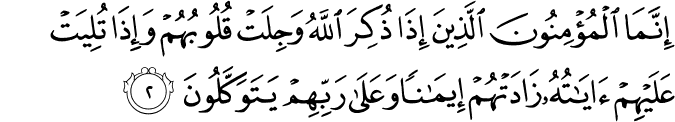 إِنَّمَا ٱلْمُؤْمِنُونَ ٱلَّذِينَ إِذَا ذُكِرَ ٱللَّهُ وَجِلَتْ قُلُوبُهُمْ وَإِذَا تُلِيَتْ
عَلَيْهِمْ ءَايَٰتُهُۥ زَادَتْهُمْ إِيمَٰنًا وَعَلَىٰ رَبِّهِمْ يَتَوَكَّلُونَ ٢